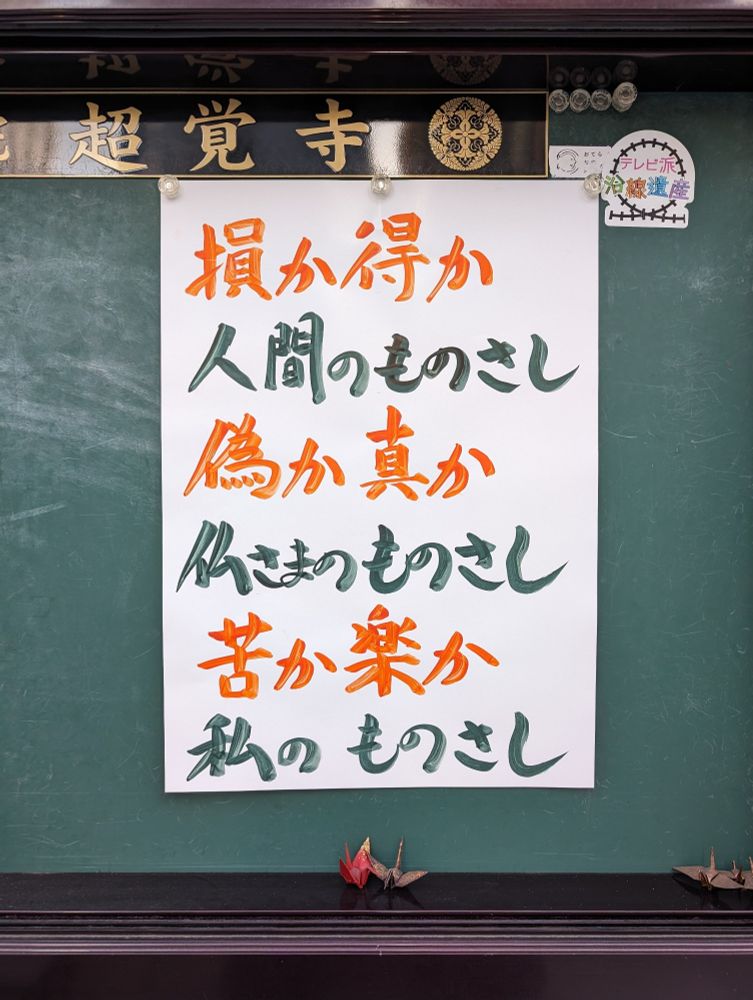 超覚寺
テレビ派
沿線遺産
損か得か
人間のものさし
偽か真か
仏さまのものさし
苦か楽か
私のものさし